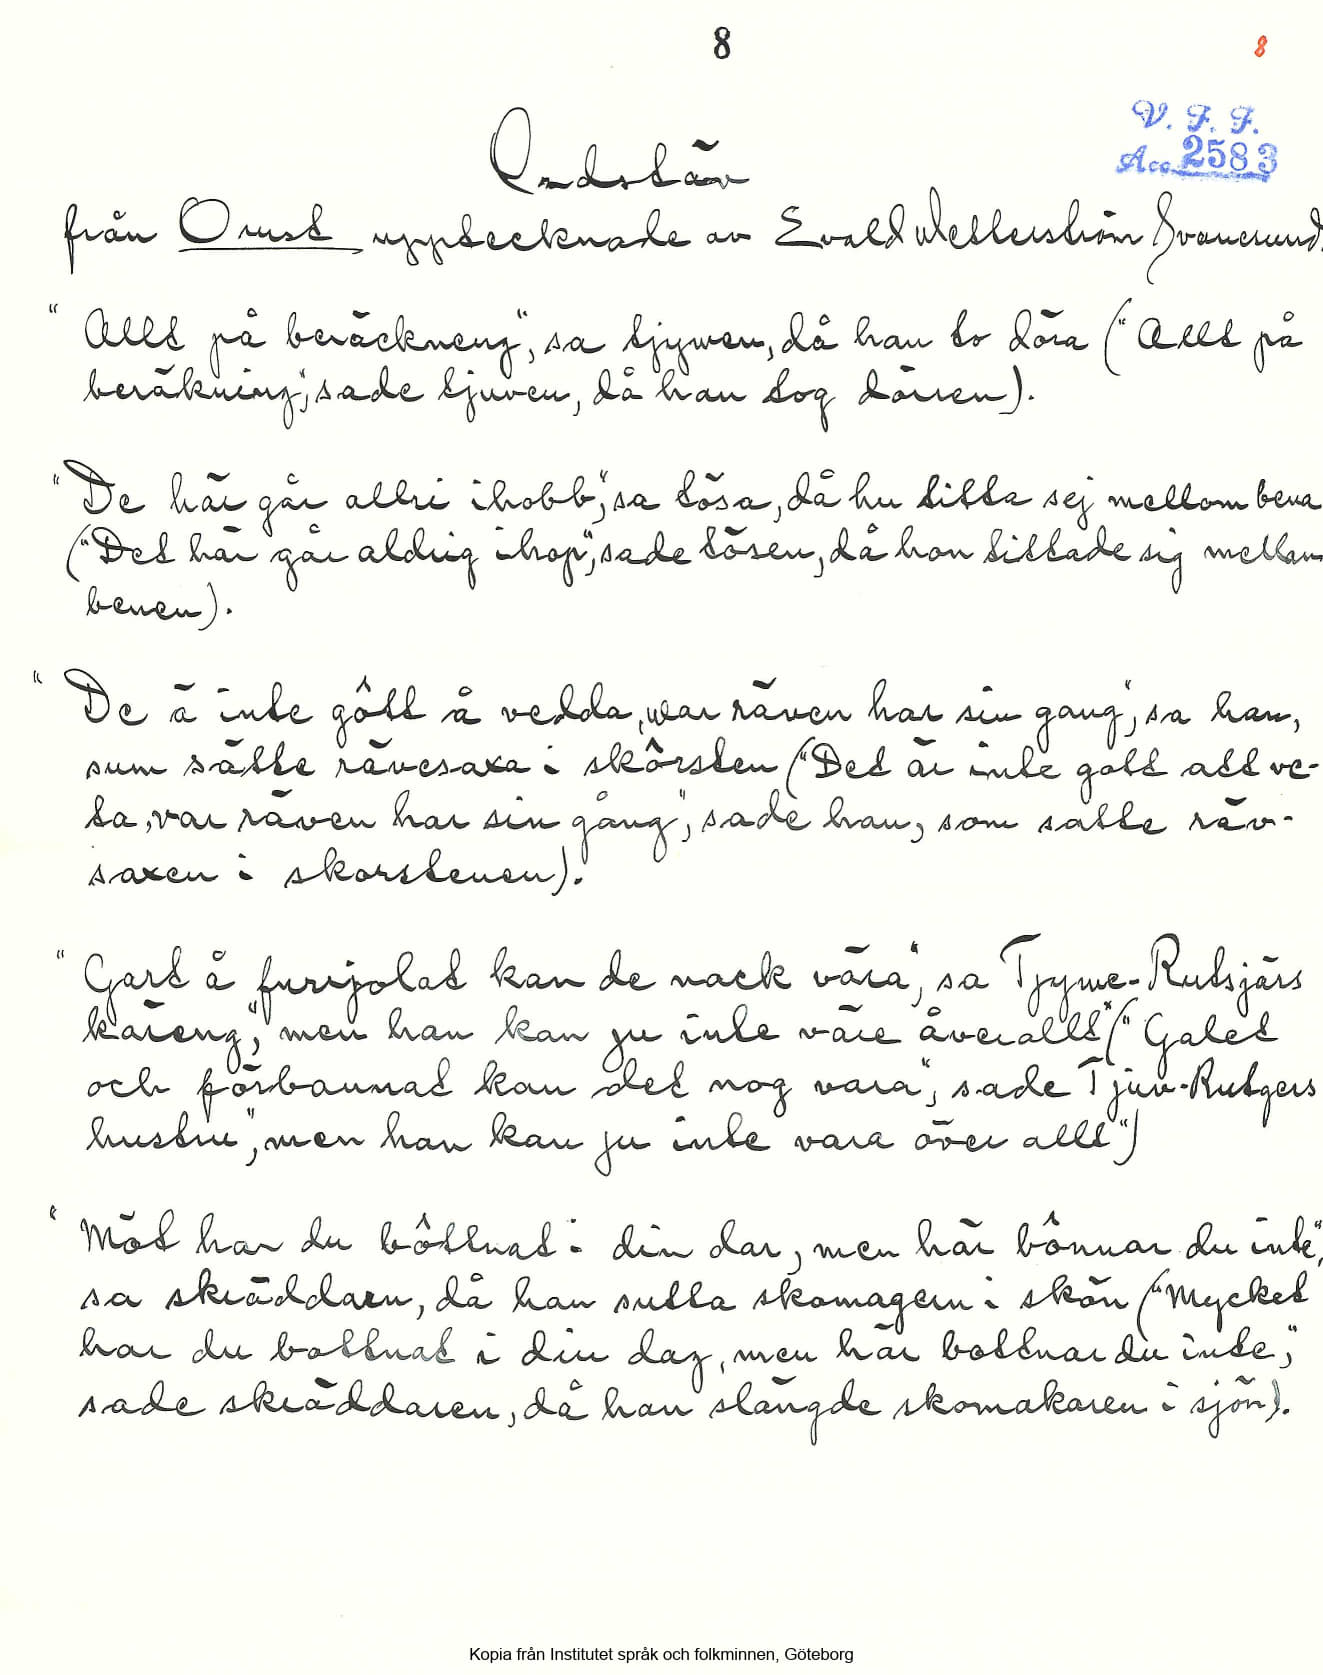 8
8
V. F. F.
Acc. 2583
Ordstäv
från Orust upptecknade av Evald Wetterström Svanesund.
"Allt på beräckneng", sa tjywen, då han to döra ("Allt på
beräkning", sade tjuven, då han tog dörren).
"De här går allri ihobb", sa tösa, då hu titta sej mellom bena
("Det här går aldrig ihop", sade tösen, då hon tittade sig mellan
benen).
"De ä inte gôtt å vedda, war räven har sin gang", sa han,
sum sätte rävesaxa i skôrsten ("Det är inte gott att ve-
ta, var räven har sin gång", sade han, som satte räv-
saxen i skorstenen).
"Gart å furrjolat kan de nack våra", sa Tjywe-Rutsjärs
käreng", men han kan ju inte väre överallt" ("Galet
och förbannat kan det nog vara", sade Tjuv-Rutgers
hustru", men han kan ju inte vara över allt")
"Möt har du bôttnat i din dar, men här bônnar du inte",
sa skräddarn, då han sutta skomagern i skön ("Mycket
har du bottnat i din dag, men här bottnar du inte",
sade skräddaren, då han slängde skomakaren i sjön).
Kopia från Institutet språk och folkminnen, Göteborg